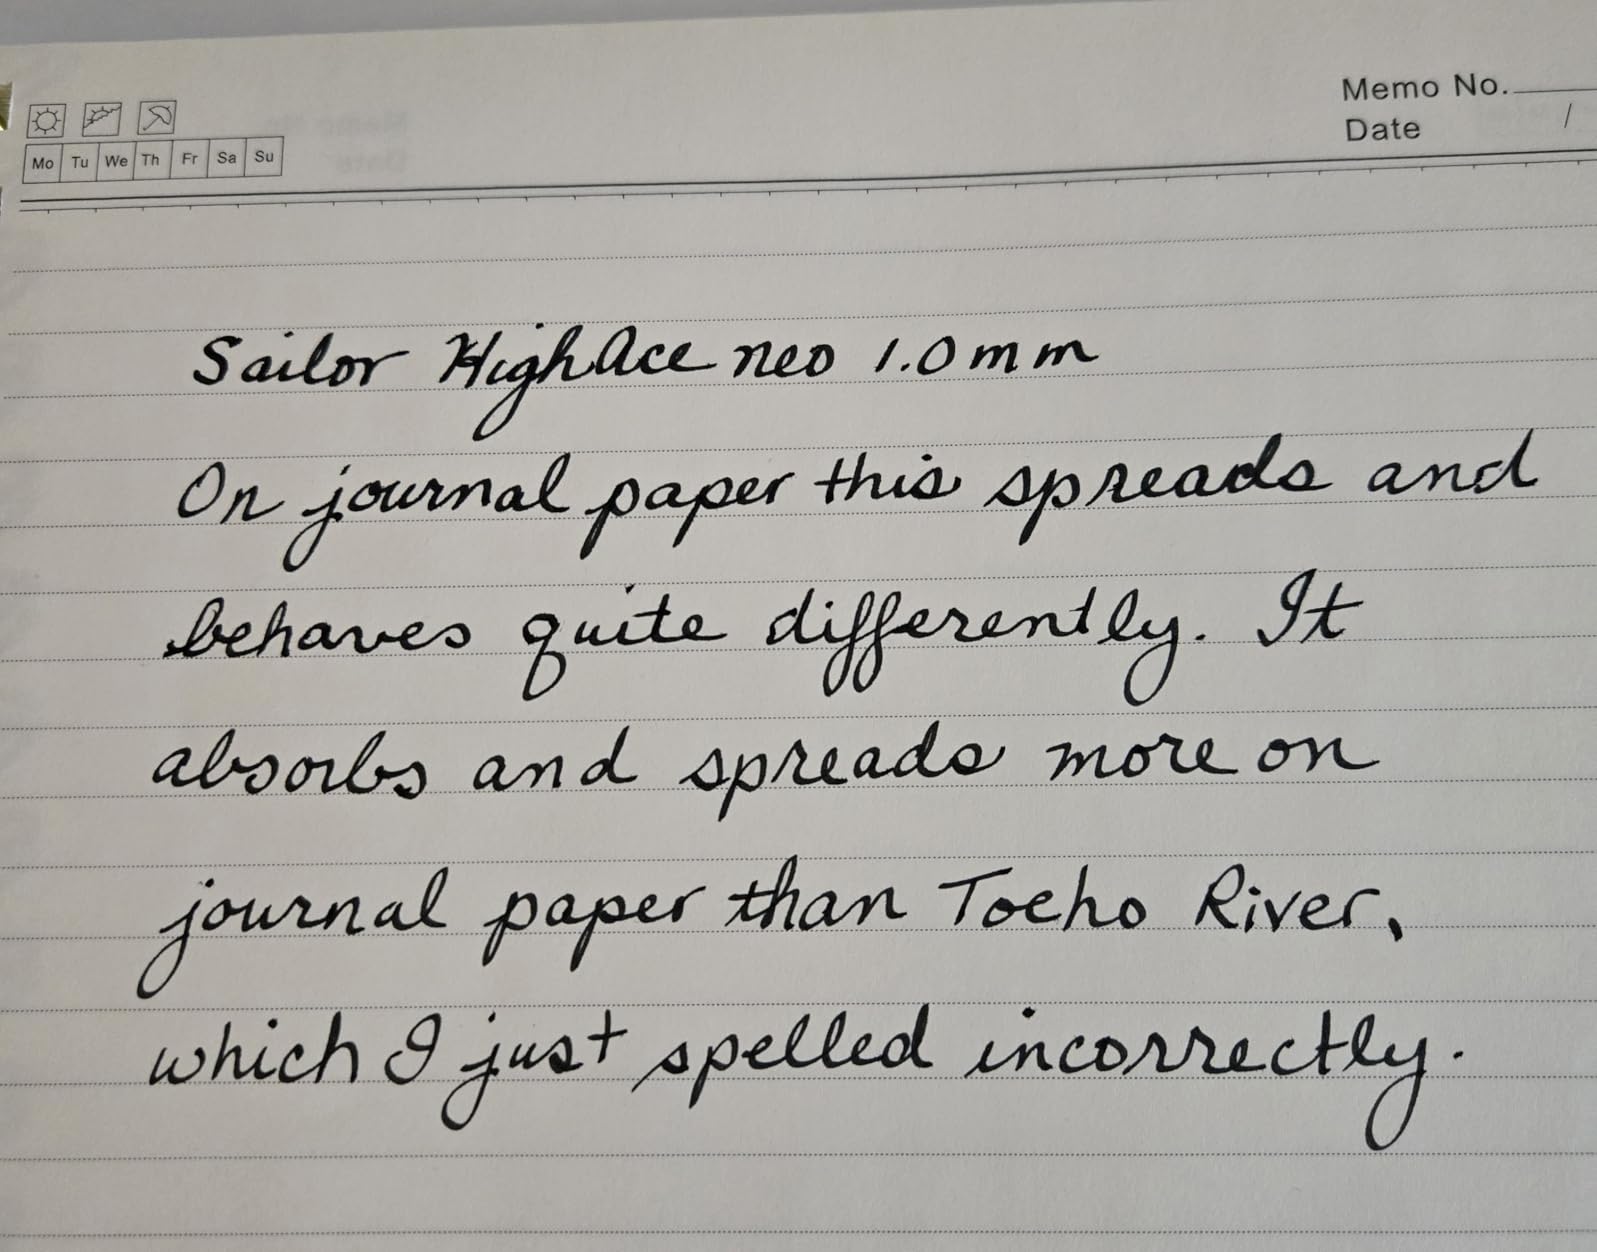 Memo No.
Date /
Mo Tu We Th Fr Sa Su
Sailor HighAce neo 1.0 mm
On journal paper this spreads and
behaves quite differently. It
absorbs and spreads more on
journal paper than Toeho River,
which I just spelled incorrectly.